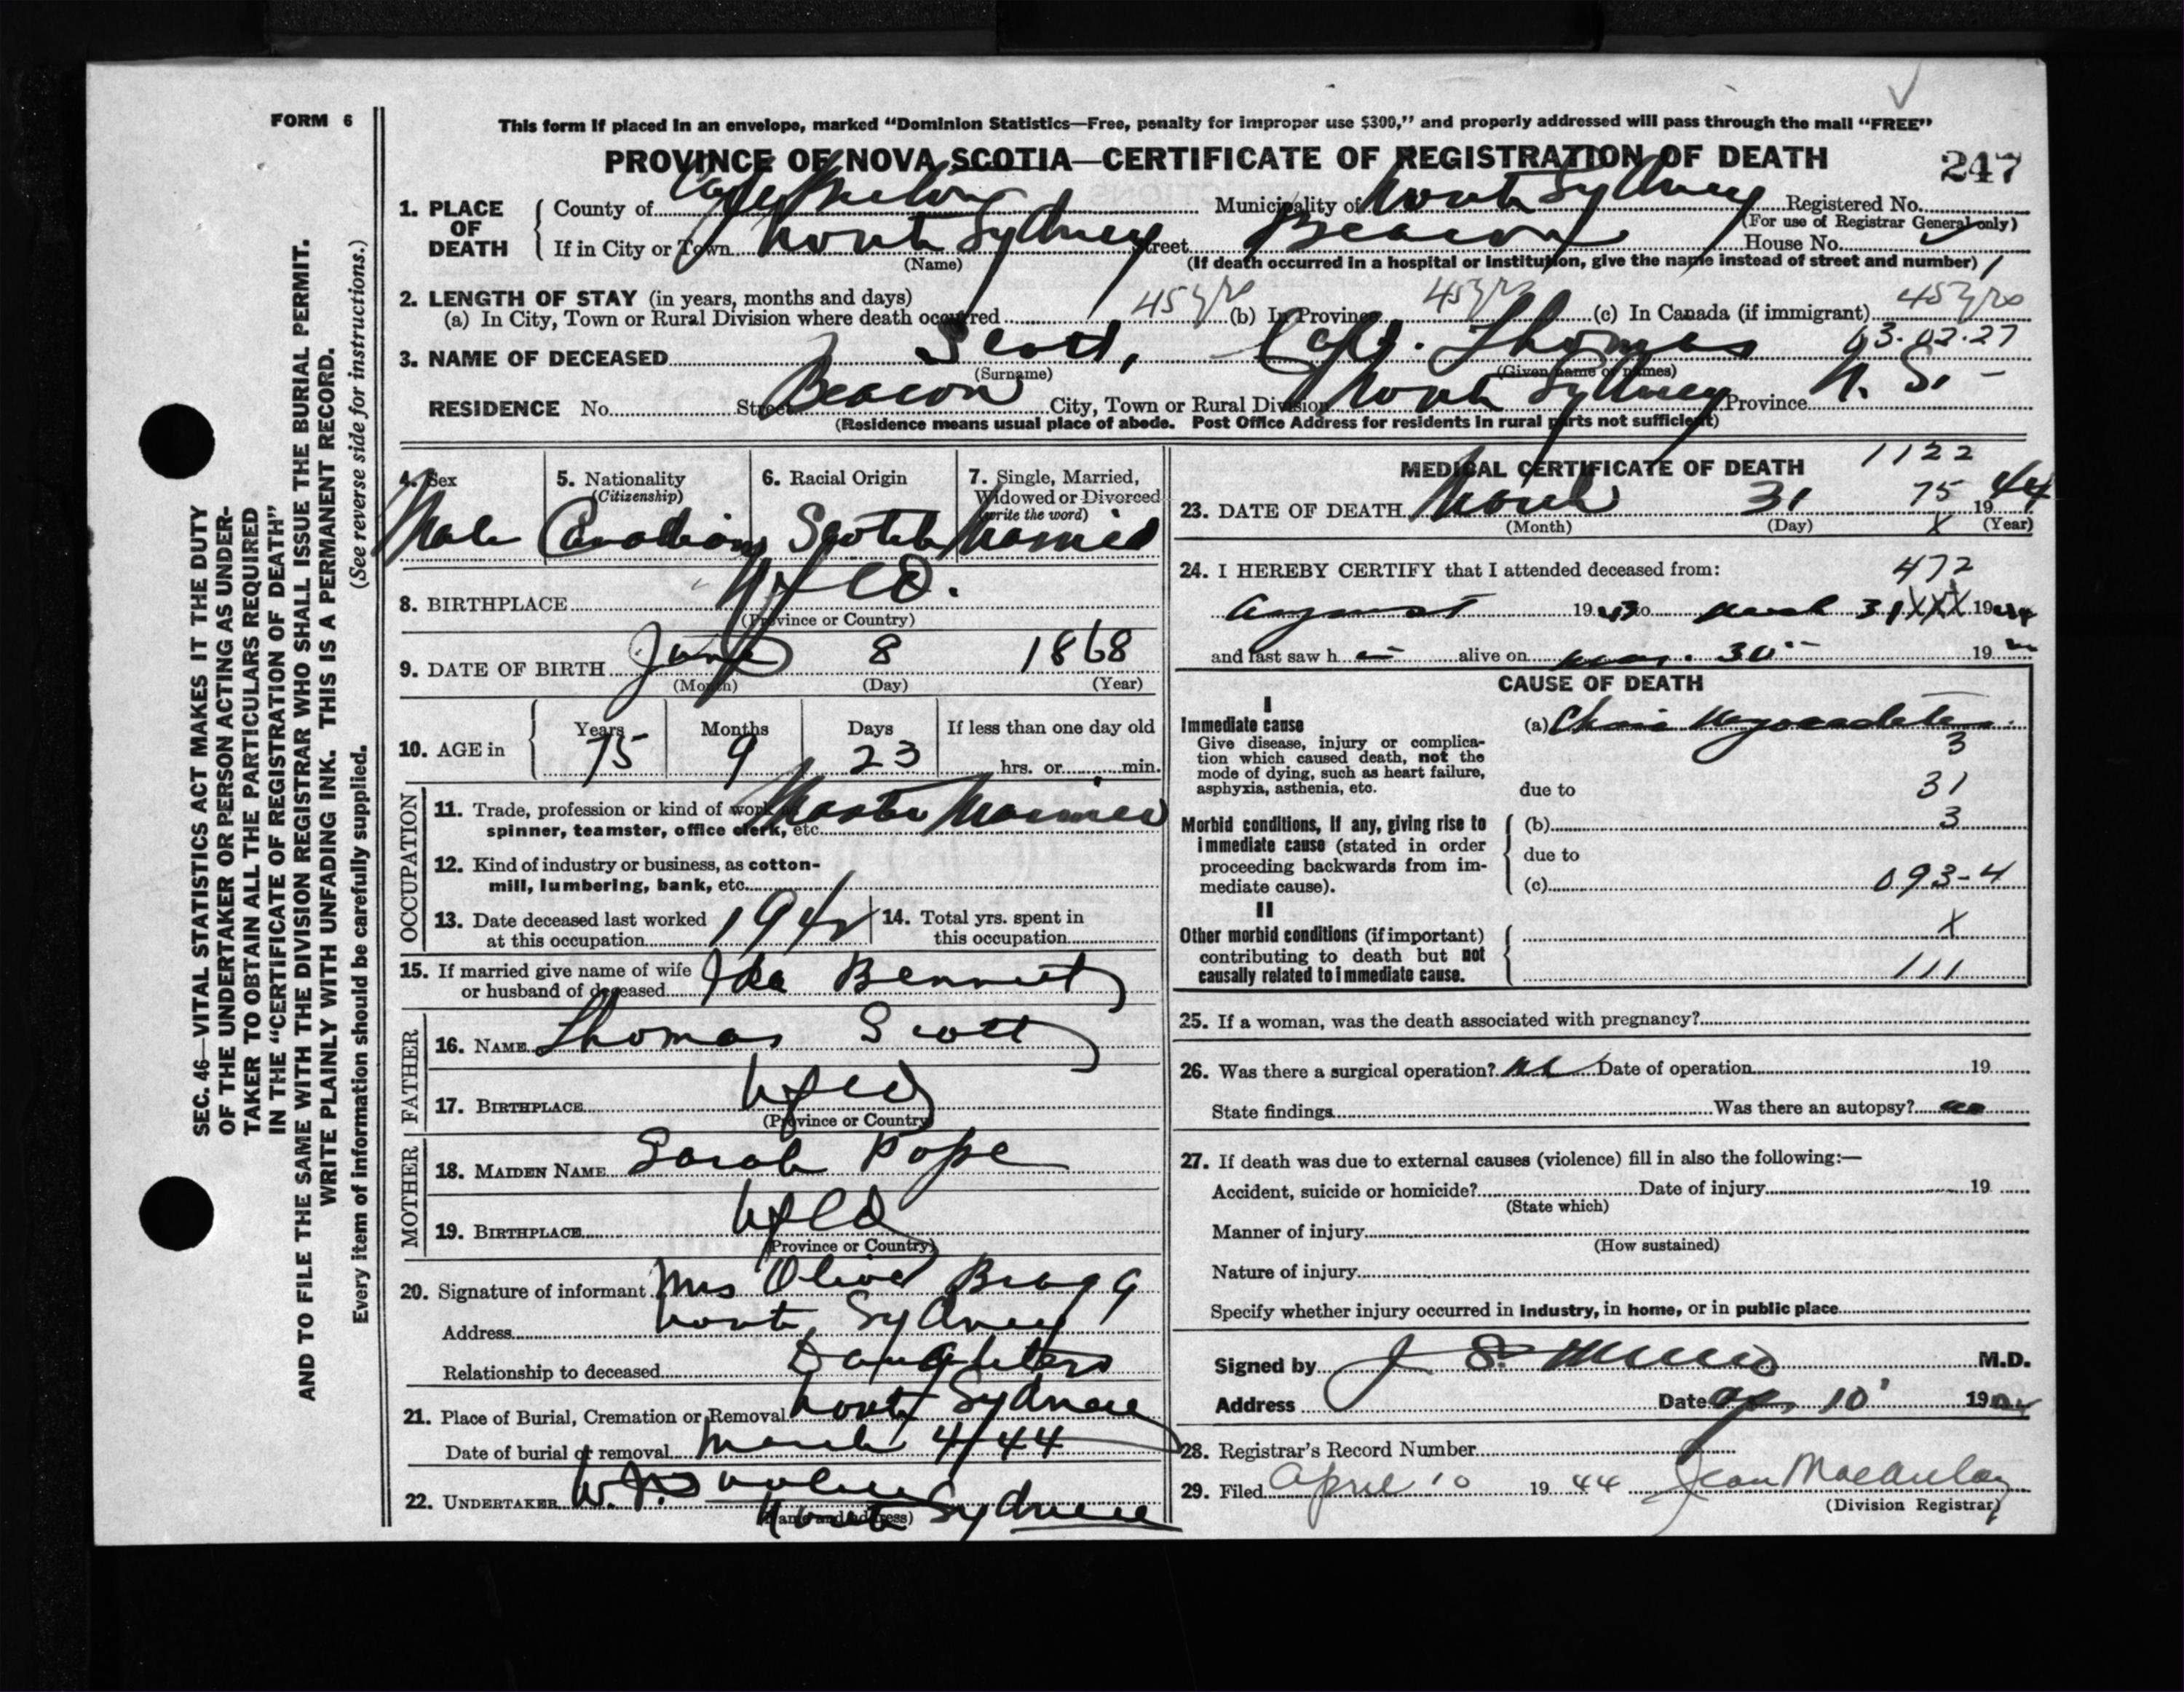 FORM 6
This form if placed in an envelope, marked "Dominion Statistics—Free, penalty for improper use $300," and properly addressed will pass through the mail "FREE"
PROVINCE OF NOVA SCOTIA—CERTIFICATE OF REGISTRATION OF DEATH 247
1. PLACE OF DEATH County of Cape Breton Municipality of North Sydney Registered No.
(For use of Registrar General only)
If in City or Town North Sydney Street Beacon House No.
(Name) (If death occurred in a hospital or institution, give the name instead of street and number)
2. LENGTH OF STAY (in years, months and days)
(a) In City, Town or Rural Division where death occurred 45 yrs (b) In Province 45 yrs (c) In Canada (if immigrant) 45 yrs
3. NAME OF DECEASED Scott, Capt. Thomas 03.02.27
(Surname) (Given name or names)
RESIDENCE No. Street Beacon City, Town or Rural Division North Sydney Province N. S.
(Residence means usual place of abode. Post Office Address for residents in rural parts not sufficient)
4. Sex 5. Nationality (Citizenship) 6. Racial Origin 7. Single, Married, Widowed or Divorced (write the word)
Male Canadian Scotch Married
8. BIRTHPLACE Nfld.
(Province or Country)
9. DATE OF BIRTH June 8 1868
(Month) (Day) (Year)
10. AGE in Years Months Days If less than one day old
75 9 23 hrs. or min.
OCCUPATION
11. Trade, profession or kind of work as Master Mariner
spinner, teamster, office clerk, etc.
12. Kind of industry or business, as cotton-
mill, lumbering, bank, etc.
13. Date deceased last worked at this occupation 194 14. Total yrs. spent in this occupation
15. If married give name of wife or husband of deceased Ida Bennett
FATHER
16. NAME Thomas Scott
17. BIRTHPLACE Nfld
(Province or Country)
MOTHER
18. MAIDEN NAME Sarah Pope
19. BIRTHPLACE Nfld
(Province or Country)
20. Signature of informant Mrs Olive Bragg
Address North Sydney
Relationship to deceased Daughter
21. Place of Burial, Cremation or Removal North Sydney
Date of burial or removal March 4/44
22. UNDERTAKER
(Name and address) North Sydney
MEDICAL CERTIFICATE OF DEATH 1122
23. DATE OF DEATH March 31 75 1944
(Month) (Day) X (Year)
24. I HEREBY CERTIFY that I attended deceased from: 472
August 1943 to March 31 XXX 1944
and last saw h alive on 30 19
CAUSE OF DEATH
I
Immediate cause (a)
Give disease, injury or complica-
tion which caused death, not the
mode of dying, such as heart failure,
asphyxia, asthenia, etc. due to
3
31
3
Morbid conditions, if any, giving rise to
immediate cause (stated in order
proceeding backwards from im-
mediate cause).
(b)
due to
(c) 093-4
II
Other morbid conditions (if important)
contributing to death but not
causally related to immediate cause.
X
111
25. If a woman, was the death associated with pregnancy?
26. Was there a surgical operation? no Date of operation 19
State findings Was there an autopsy? no
27. If death was due to external causes (violence) fill in also the following:—
Accident, suicide or homicide? Date of injury 19
(State which)
Manner of injury
(How sustained)
Nature of injury
Specify whether injury occurred in industry, in home, or in public place
Signed by J S Munro M.D.
Address Date Ap. 10 19
28. Registrar's Record Number
29. Filed April 10 19 44 Jean MacAulay
(Division Registrar)
SEC. 46—VITAL STATISTICS ACT MAKES IT THE DUTY
OF THE UNDERTAKER OR PERSON ACTING AS UNDER-
TAKER TO OBTAIN ALL THE PARTICULARS REQUIRED
IN THE "CERTIFICATE OF REGISTRATION OF DEATH"
AND TO FILE THE SAME WITH THE DIVISION REGISTRAR WHO SHALL ISSUE THE BURIAL PERMIT.
WRITE PLAINLY WITH UNFADING INK. THIS IS A PERMANENT RECORD.
Every item of information should be carefully supplied. (See reverse side for instructions.)